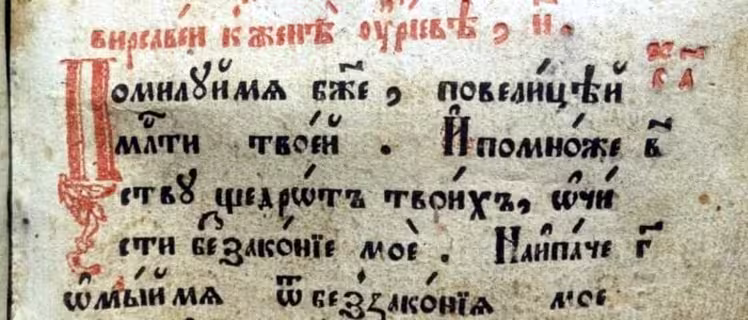 вирсавїи к женѣ оурїевѣ, н҃.
Помилꙋй мѧ бж҃е, повелицѣй
млⷭ҇ти твоей. И помно́же в
ствꙋ щедрѡ́тъ твои́хъ, ѡ҆чи́
сти беззако́нїе моѐ. Наипа́че
ѡ҆мы́й мѧ ѿ беззако́нїѧ мое